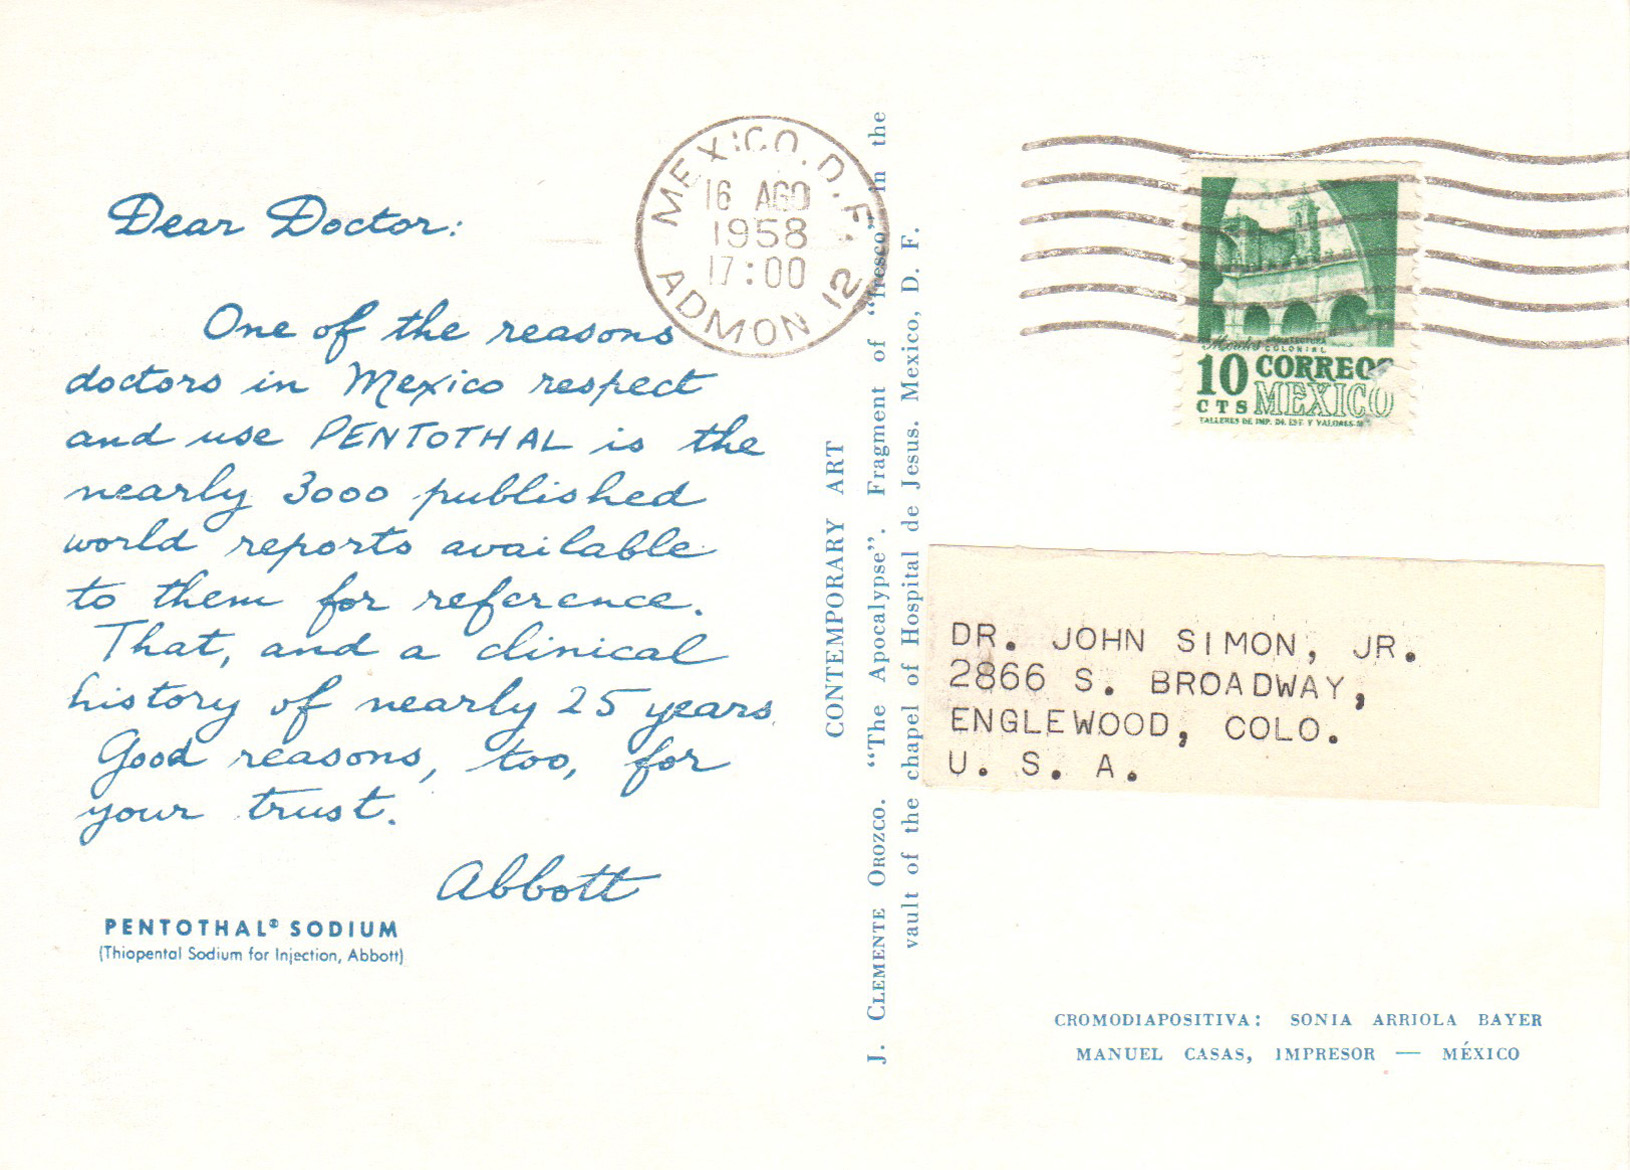 Dear Doctor:
One of the reasons
doctors in Mexico respect
and use PENTOTHAL is the
nearly 3000 published
world reports available
to them for reference.
That, and a clinical
history of nearly 25 years.
Good reasons, too, for
your trust.
Abbott
PENTOTHAL® SODIUM
(Thiopental Sodium for Injection, Abbott)
MEXICO, D.F.
16 AGO
1958
17:00
ADMON 12
CONTEMPORARY ART
J. CLEMENTE OROZCO. "The Apocalypse". Fragment of "fresco" in the
vault of the chapel of Hospital de Jesus. Mexico, D. F.
Morelos ARQUITECTURA
COLONIAL
10 CORREOS
CTS MEXICO
TALLERES DE IMP. DE EST. Y VALORES
DR. JOHN SIMON, JR.
2866 S. BROADWAY,
ENGLEWOOD, COLO.
U. S. A.
CROMODIAPOSITIVA: SONIA ARRIOLA BAYER
MANUEL CASAS, IMPRESOR — MÉXICO